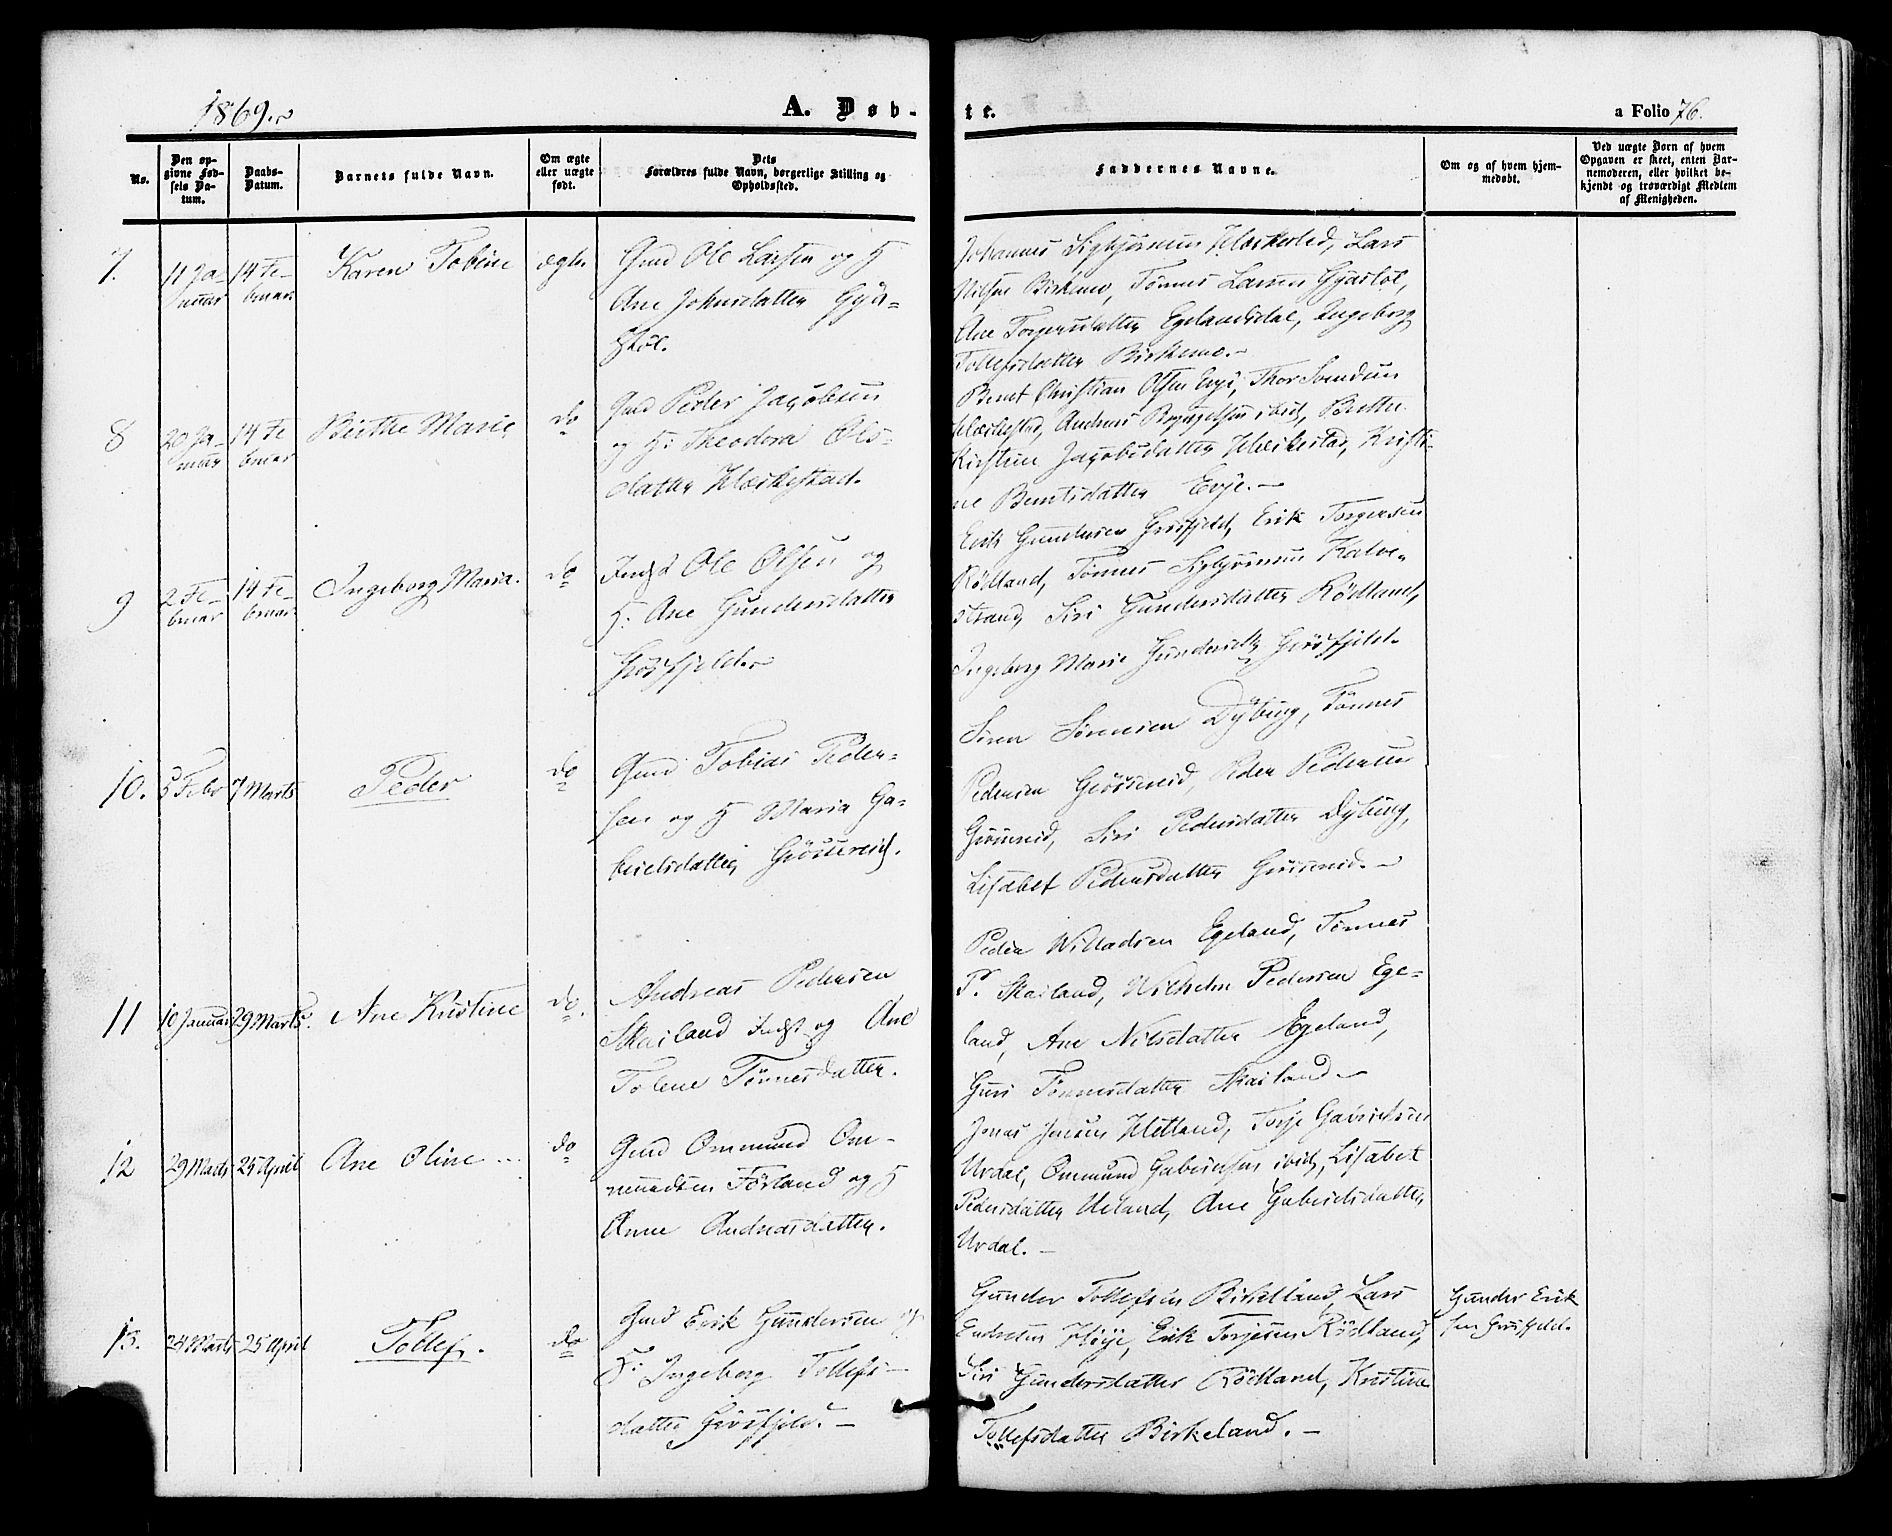 1869.
A. Døb-
te.
a Folio 76.
No.
Den op-
givne Fød-
sels Da-
tum.
Daabs-
Datum.
Barnets fulde Navn.
Om ægte
eller uægte
født.
Dets
Forældres fulde Navn, borgerlige Stilling og
Opholdssted.
Faddernes Navne.
Om og af hvem hjem-
medøbt.
Ved uægte Born af hvem
Opgaven er skeet, enten Bar-
nemoderen, eller hvilket be-
kjendt og troværdigt Medlem
af Menigheden.
7.
11 Ja-
nuar
14 Fe-
bruar
Karen Tobine
ægte
Gmd Ole Larsen og H
Ane Johnsdatter
Johannes Sigbjørnsen Lars
Nilsen Birkemo, Tønnes Larsen
Ane Torgersdatter Egelandsdal, Ingeborg
Tollefsdatter Birkemo.-
8
20 Ja-
nuar
14 Fe
bruar
Birthe Marie
do
Gmd Peder Jacobsen
og H: Theodora Ols-
datter Hæskestad.
Bernt Christian Olsen Eve, Thor Svendsen
Hæskestad, Andreas ibid, Birthe
Kirstine Jacobsdatter Hæskestad, Kristi-
ne Berntsdatter Evje.-
9
2 Fe-
bruar
14 Fe
bruar
Ingeborg Maria.
do
Indst Ole Olsen og
H. Ane Gundersdatter
Grøsfjeld.
Erik Gundersen Grøsfjeld, Erik Torgersen
Rødland, Tønnes Sigbjørnsen Kalve-
strand, Siri Gundersdatter Rødland,
Ingeborg Marie Gundersdtr Grøsfjeld.
10.
5 Febr
7 Marts
Peder
do
Gmd Tobias Peder-
sen og H Maria Ga-
brielsdatter
Søren Sørensen Dybing, Tønnes
Pedersen Peder Pedersen
Siri Pedersdatter Dybing,
Lisabet Pedersdatter
11
10 Januar
29 Marts.
Ane Kristine
do.
Andreas Pedersen
Skailand Indst og Ane
Tolene Tønnesdatter.
Peder Willadsen Egeland, Tønnes
P. Skailand, Wilhelm Pedersen Ege-
land, Ane Nilsdatter Egeland,
Guri Tønnesdatter Skailand.-
12
29 Marts
25 April
Ane Oline
do
Gmd Ommund Om-
mundsen Førland og H
Anne Andreasdatter.
Jonas Jensen Hetland, Torje Gabrielsen
Urdal, Ommund Gabrielsen ibid, Lisabet
Pedersdatter Ueland, Ane Gabrielsdatter
Urdal.-
13.
24 Marts
25 April
Tollef.
do
Gmd Erik Gundersen og
H: Ingeborg Tollefs-
datter Grøsfjeld.-
Gunder Tollefsen Birkelland, Lars
Endresen Høye, Erik Torjesen Rødland,
Siri Gundersdatter Rødland, Kristine
Tollefsdatter Birkeland.-
Gunder Erik
sen Grøsfjeld.